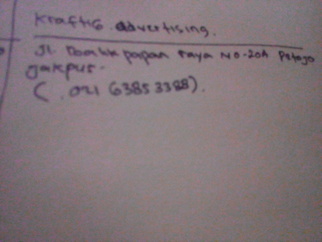 Kraftig advertising.
Jl Tomang papan raya NO-20A Petojo
jakpus-
( . 021 63853388).